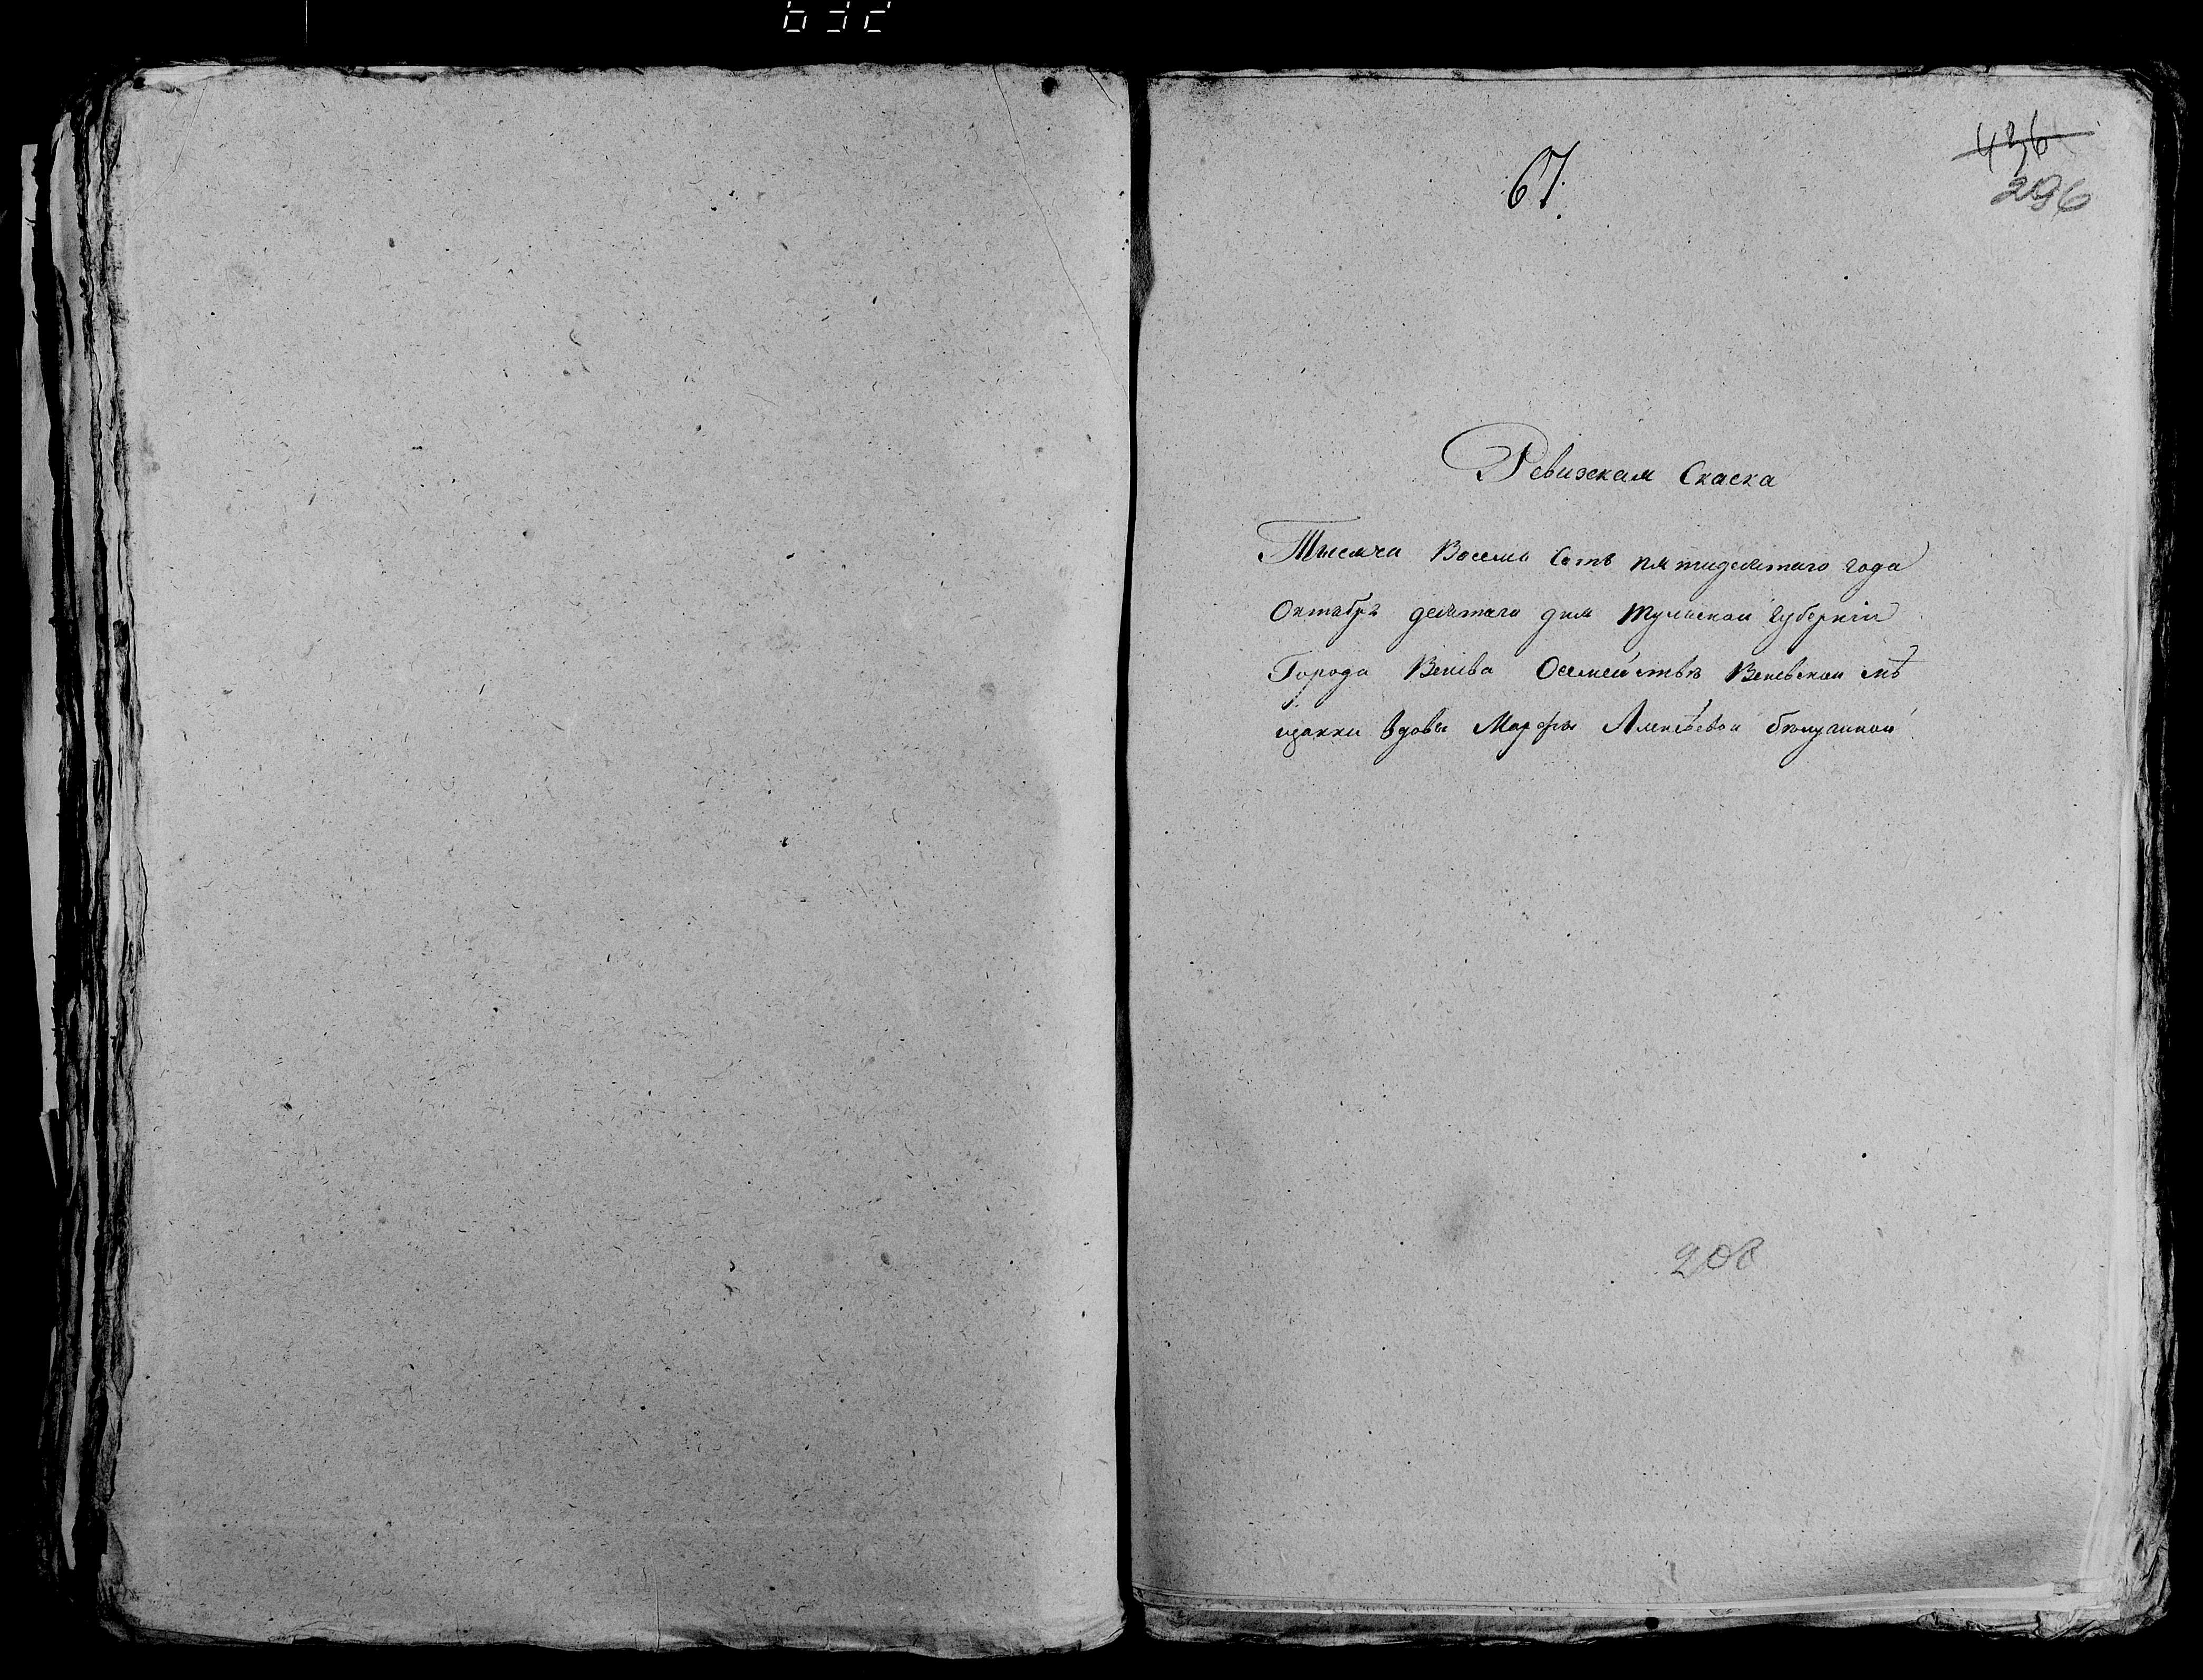 67.
436
296
Ревизская Скаска
Тысеча Восемь Сотъ пятидесятаго года
Октабря десятаго дня Тульской губерніи
Города Венева Осемействѣ Веневской мѣ
щанки вдовы Марфы Алексѣевой
208